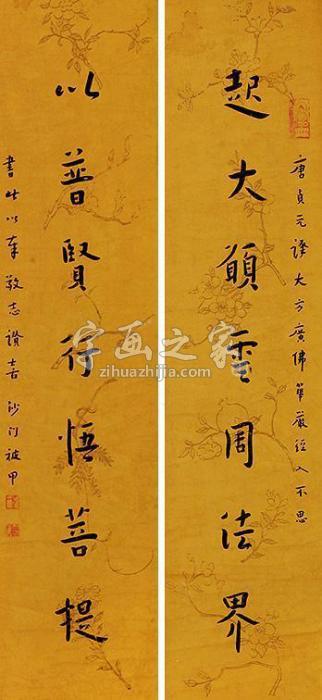 唐貞元譯大方廣佛華嚴經入不思
起大願雲周法界
以普賢行悟菩提
書此以奉敬志讚言沙門被甲
字画之家
zihuazhijia.com